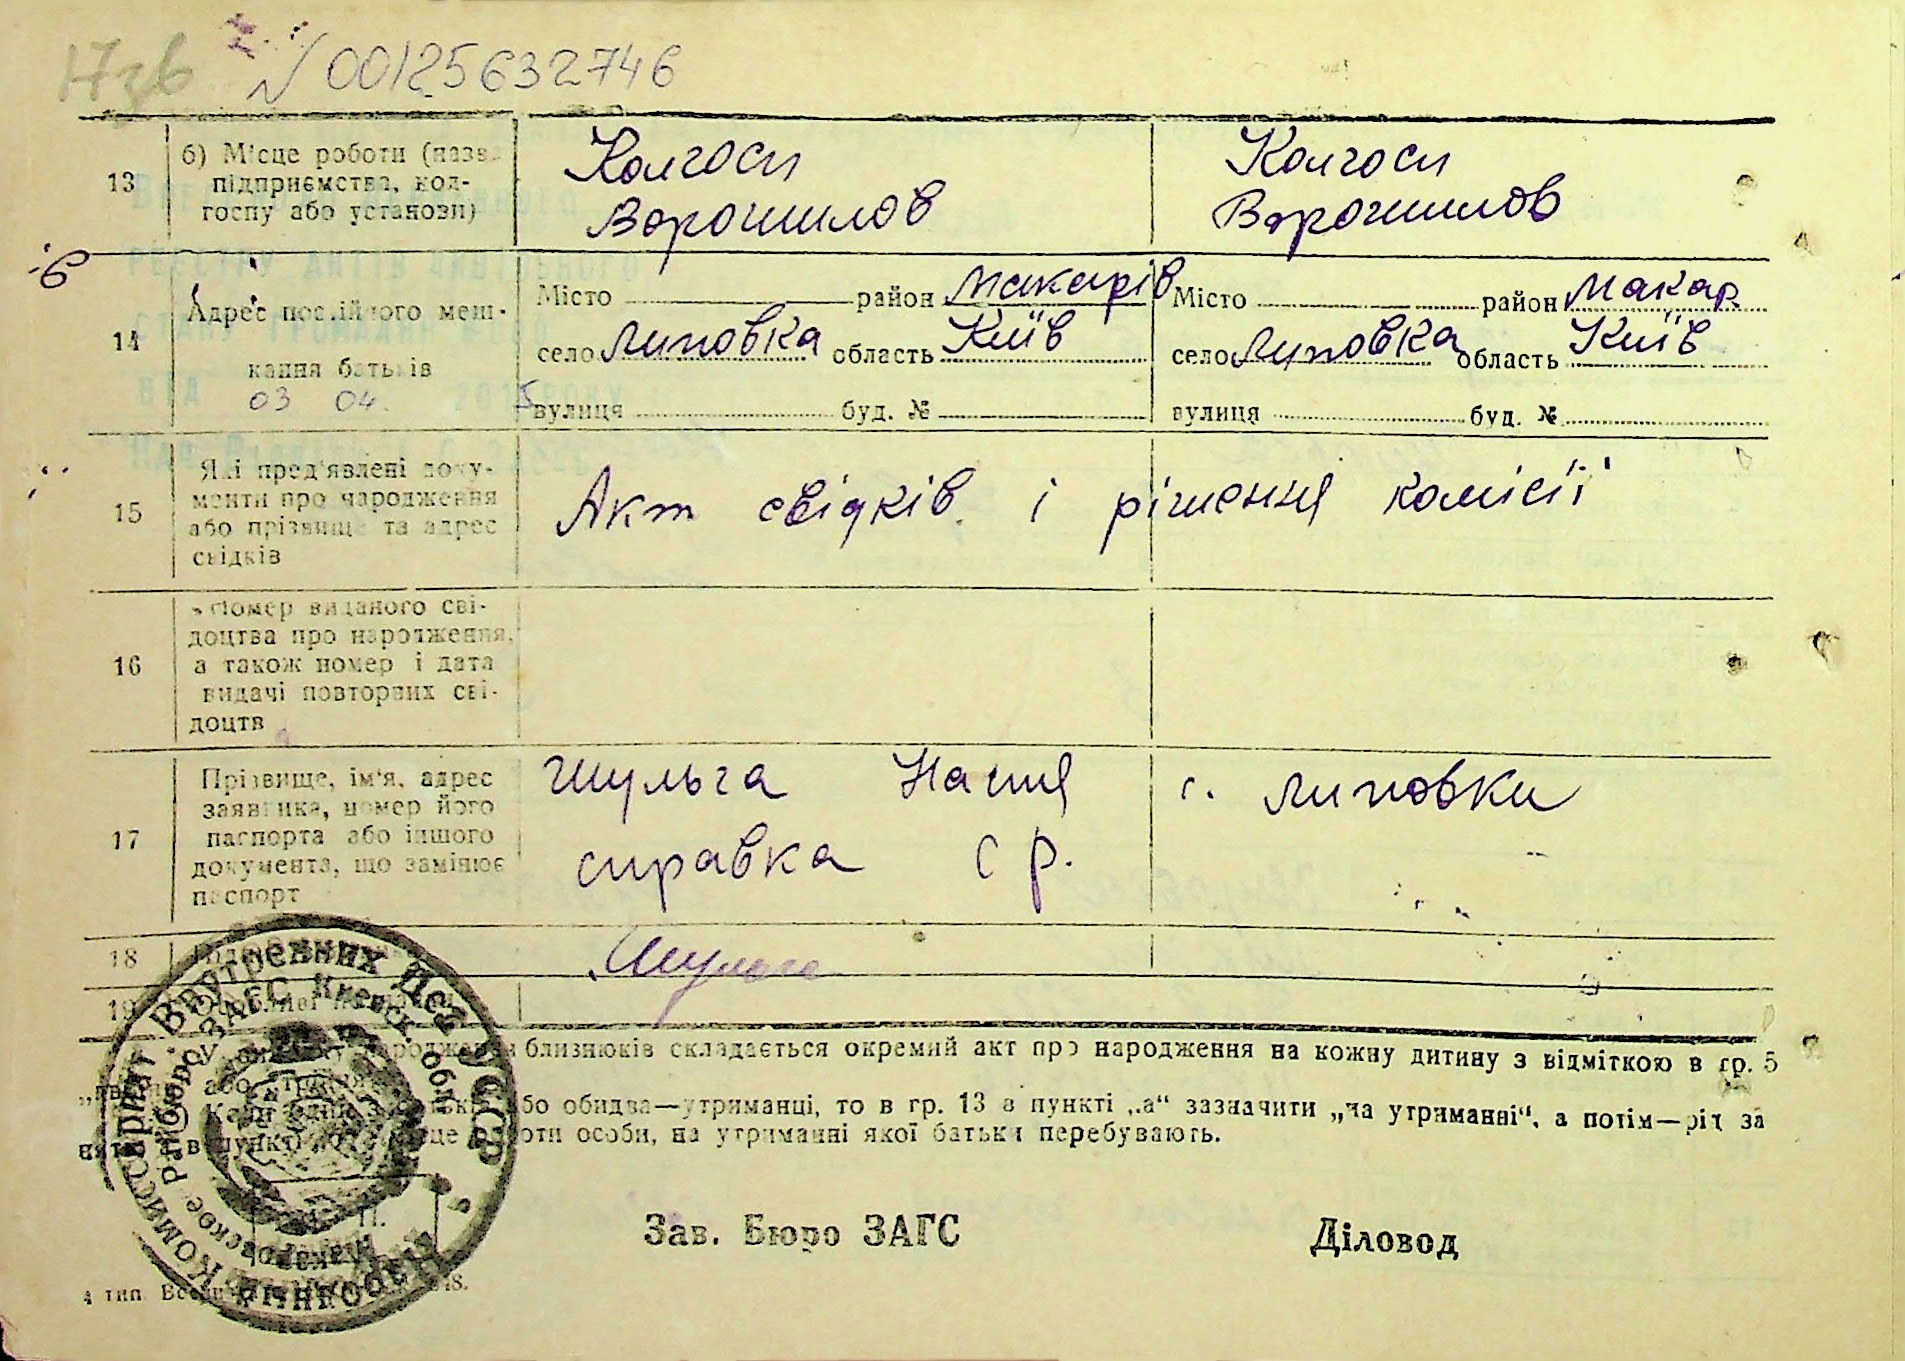 17зв N 00125632746
13
б) Місце роботи (назва підприємства, колгоспу або установи)
Колгосп Ворошилов
Колгосп Ворошилов
14
Адрес постійного мешкання батьків
03 04.
Місто район Макарів
село Липовка область Київ
вулиця буд. №
Місто район Макар
село Липовка область Київ
вулиця буд. №
15
Які пред'явлені документи про народження або прізвище та адрес свідків
Акт свідків і рішення комісії
16
Номер виданого свідоцтва про народження, а також номер і дата видачі повторних свідоцтв
17
Прізвище, ім'я, адрес заявника, номер його паспорта або іншого документа, що замінює паспорт
Шульга Настя с. Липовки
справка с р.
18
Шульга
19
близнюків складається окремий акт про народження на кожну дитину з відміткою в гр. 5
або обидва—утриманці, то в гр. 13 в пункті „а“ зазначити „на утриманні“, а потім—рід за
роботи особи, на утриманні якої батьки перебувають.
Зав. Бюро ЗАГС
Діловод
Народний Комиссариат Внутренних Дел УССР
Макаровское Райбюро ЗАГС Киевск. обл.